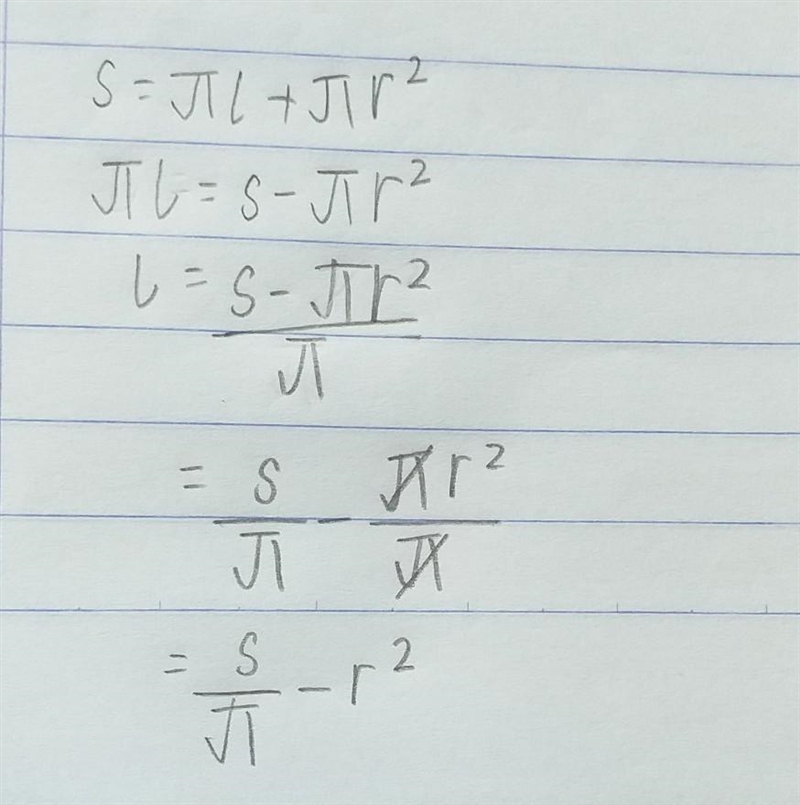 S = πl + πr²
πl = S - πr²
l = (S - πr²)/π
= S/π - πr²/π
= S/π - r²